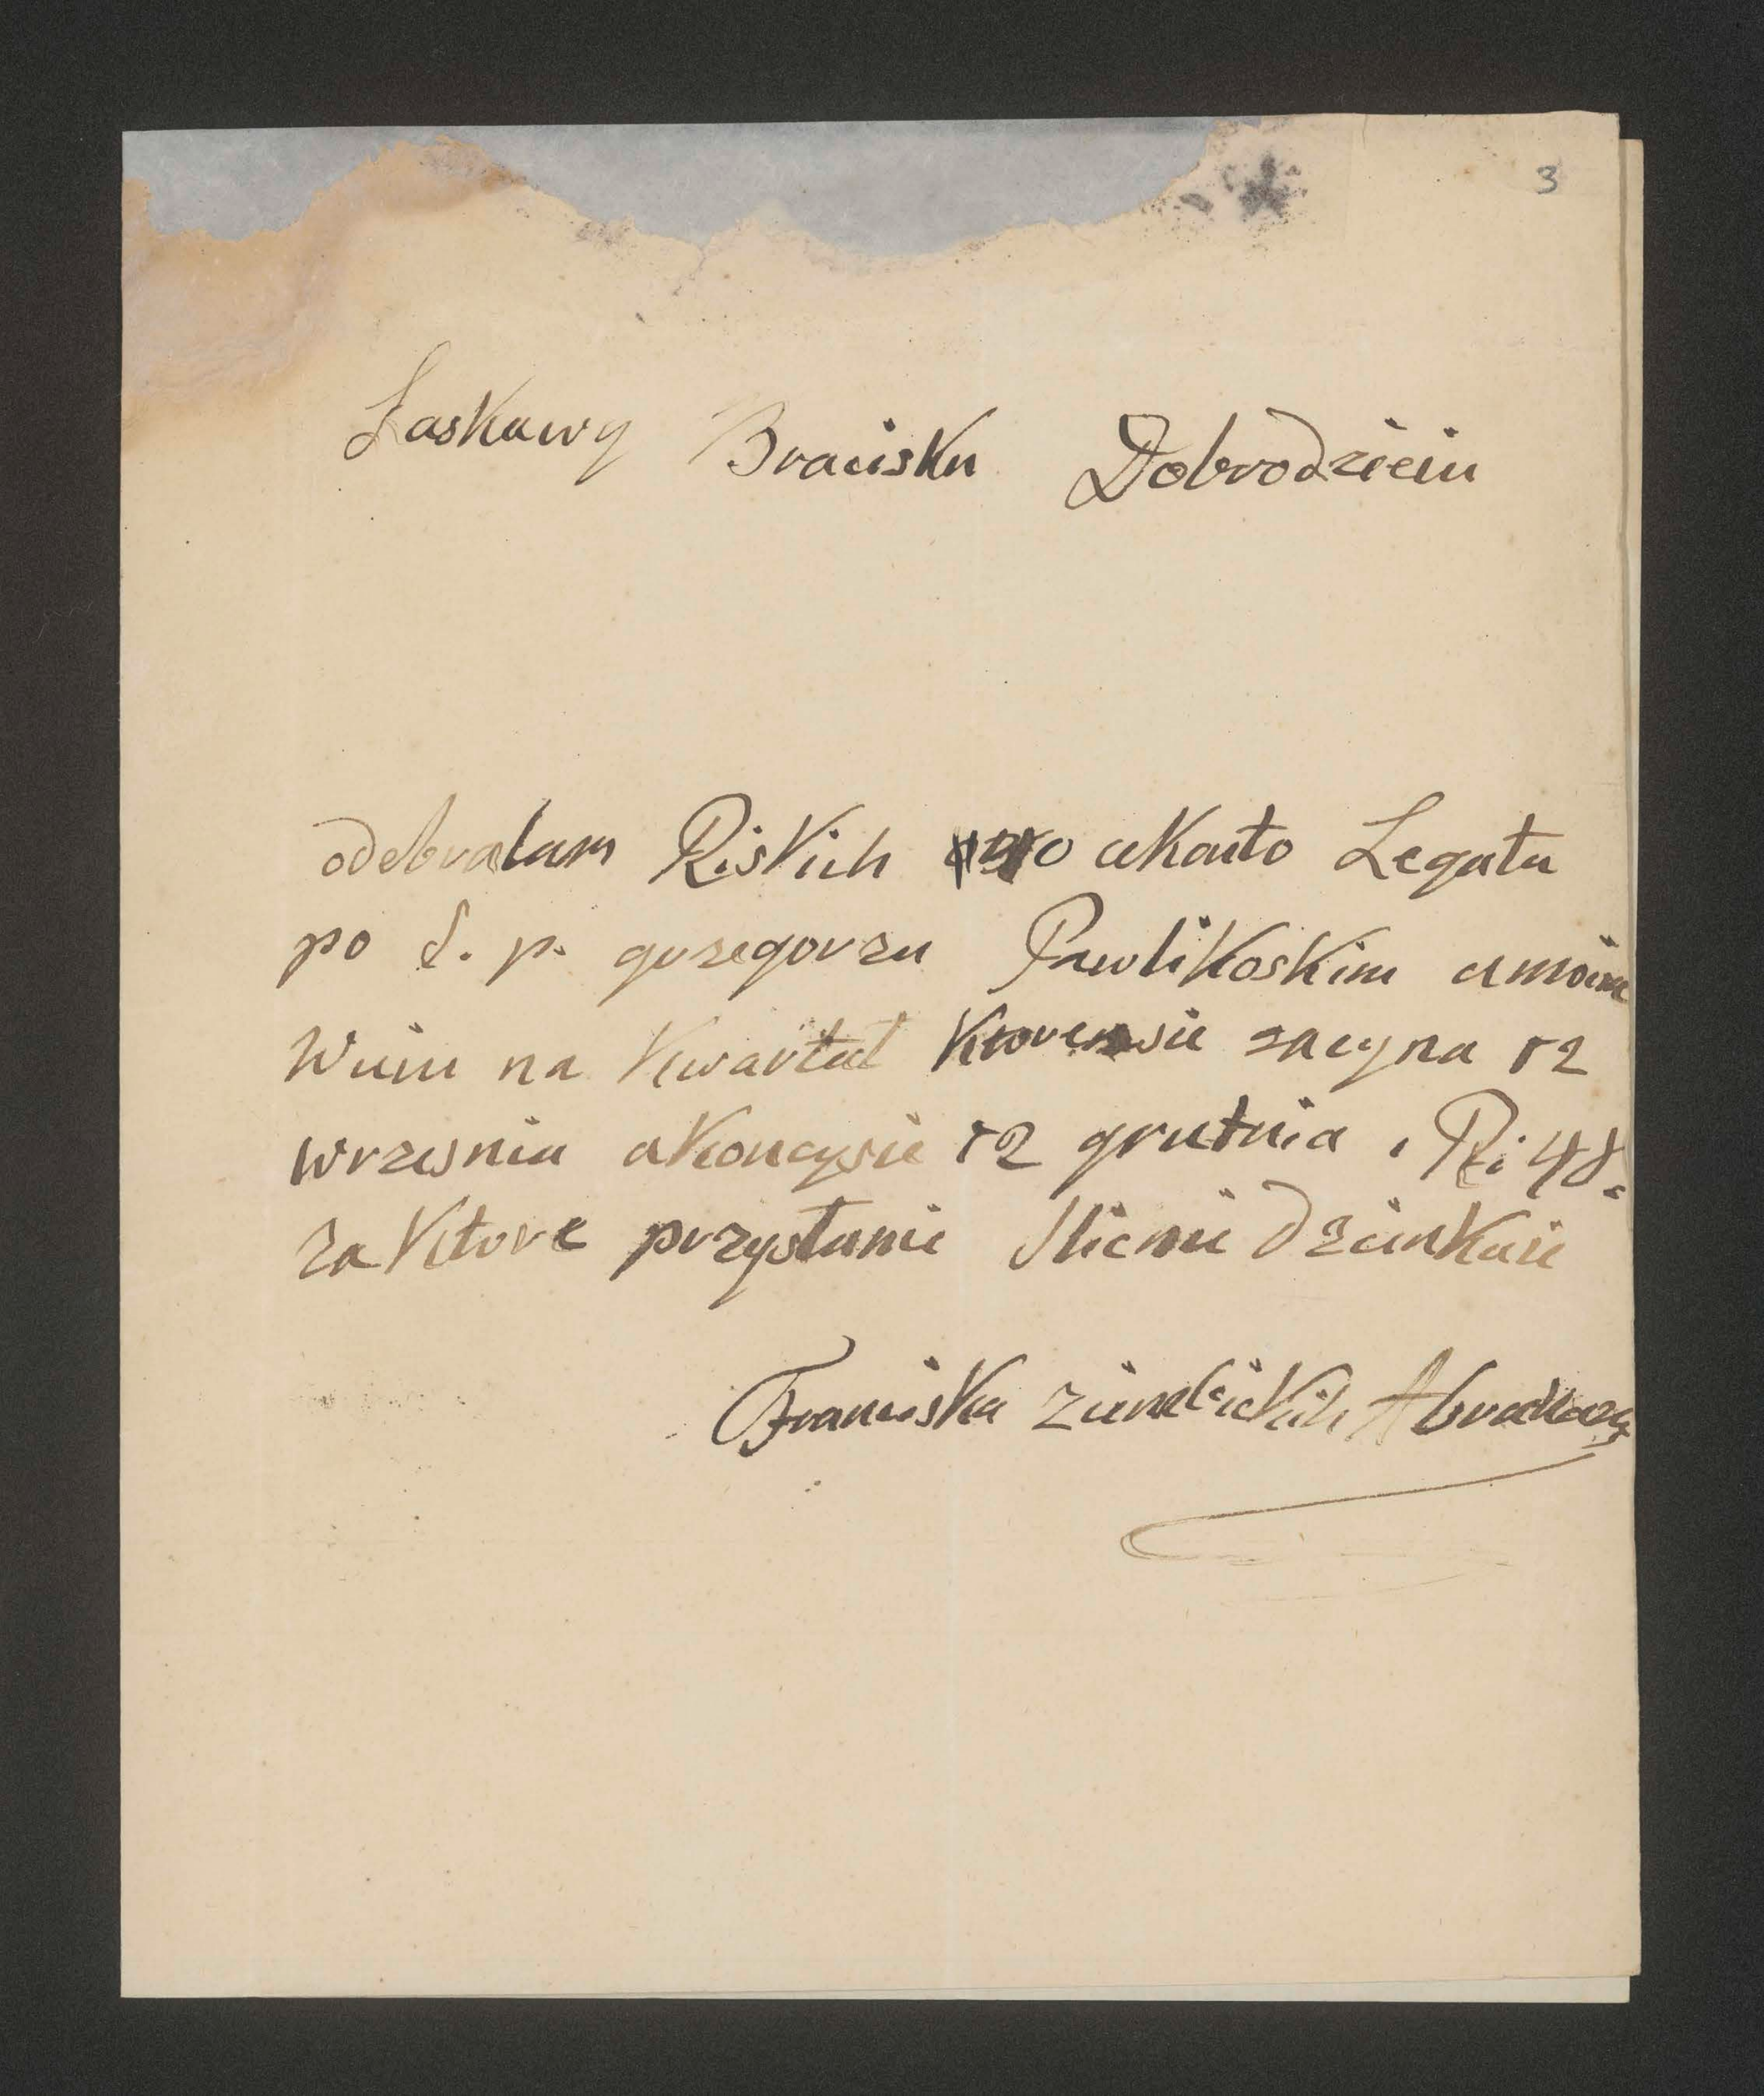 3
Łaskawy Bracisku Dobrodzieiu
odebralam Riskich akonto Legatu
po ś. p. gozegorzu Pawlikoskim a moim
Wuiu na Kwartał zacyna 12
wrzesnia akoncysie 12 grutnia, Ri 48.
za Ktore przysłanie Slicnie dzienkuie
Franciska